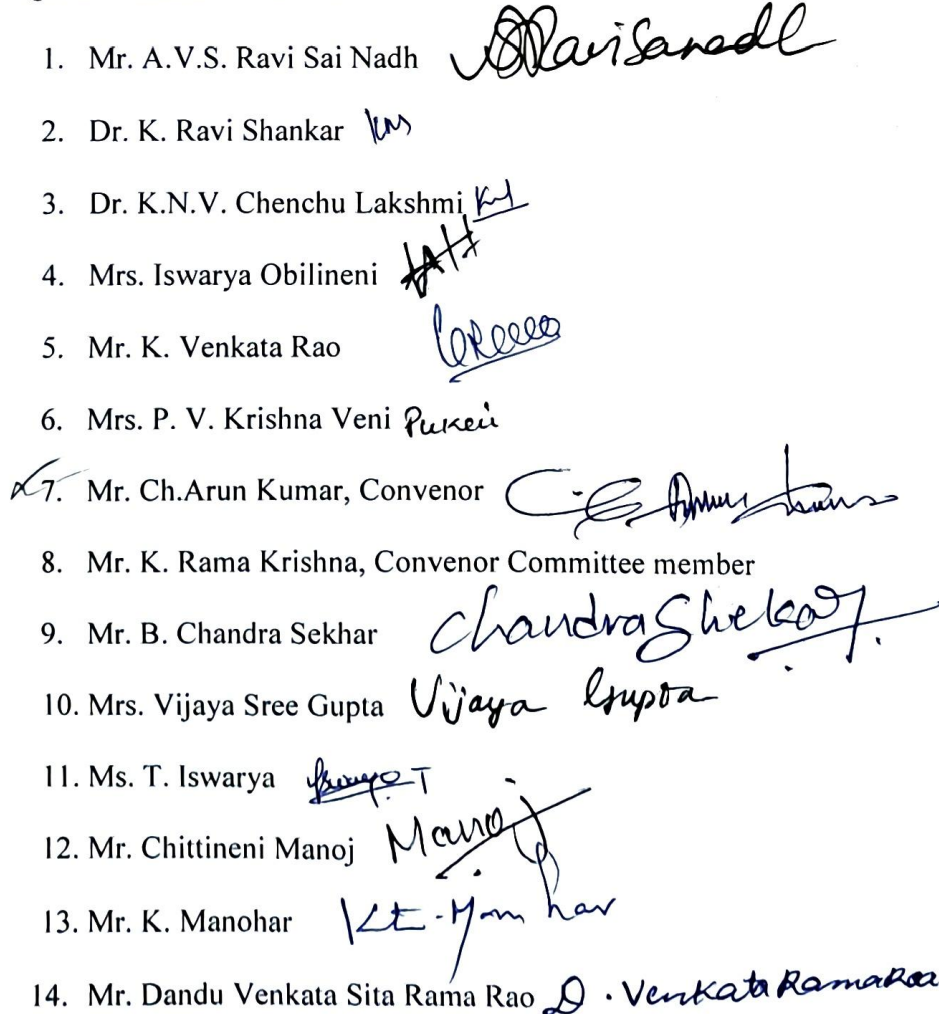 1. Mr. A.V.S. Ravi Sai Nadh
2. Dr. K. Ravi Shankar
3. Dr. K.N.V. Chenchu Lakshmi
4. Mrs. Iswarya Obilineni
5. Mr. K. Venkata Rao
6. Mrs. P. V. Krishna Veni
7. Mr. Ch.Arun Kumar, Convenor
8. Mr. K. Rama Krishna, Convenor Committee member
9. Mr. B. Chandra Sekhar ChandraShekar
10. Mrs. Vijaya Sree Gupta Vijaya Gupta
11. Ms. T. Iswarya
12. Mr. Chittineni Manoj Manoj
13. Mr. K. Manohar
14. Mr. Dandu Venkata Sita Rama Rao D. Venkata Ramarao